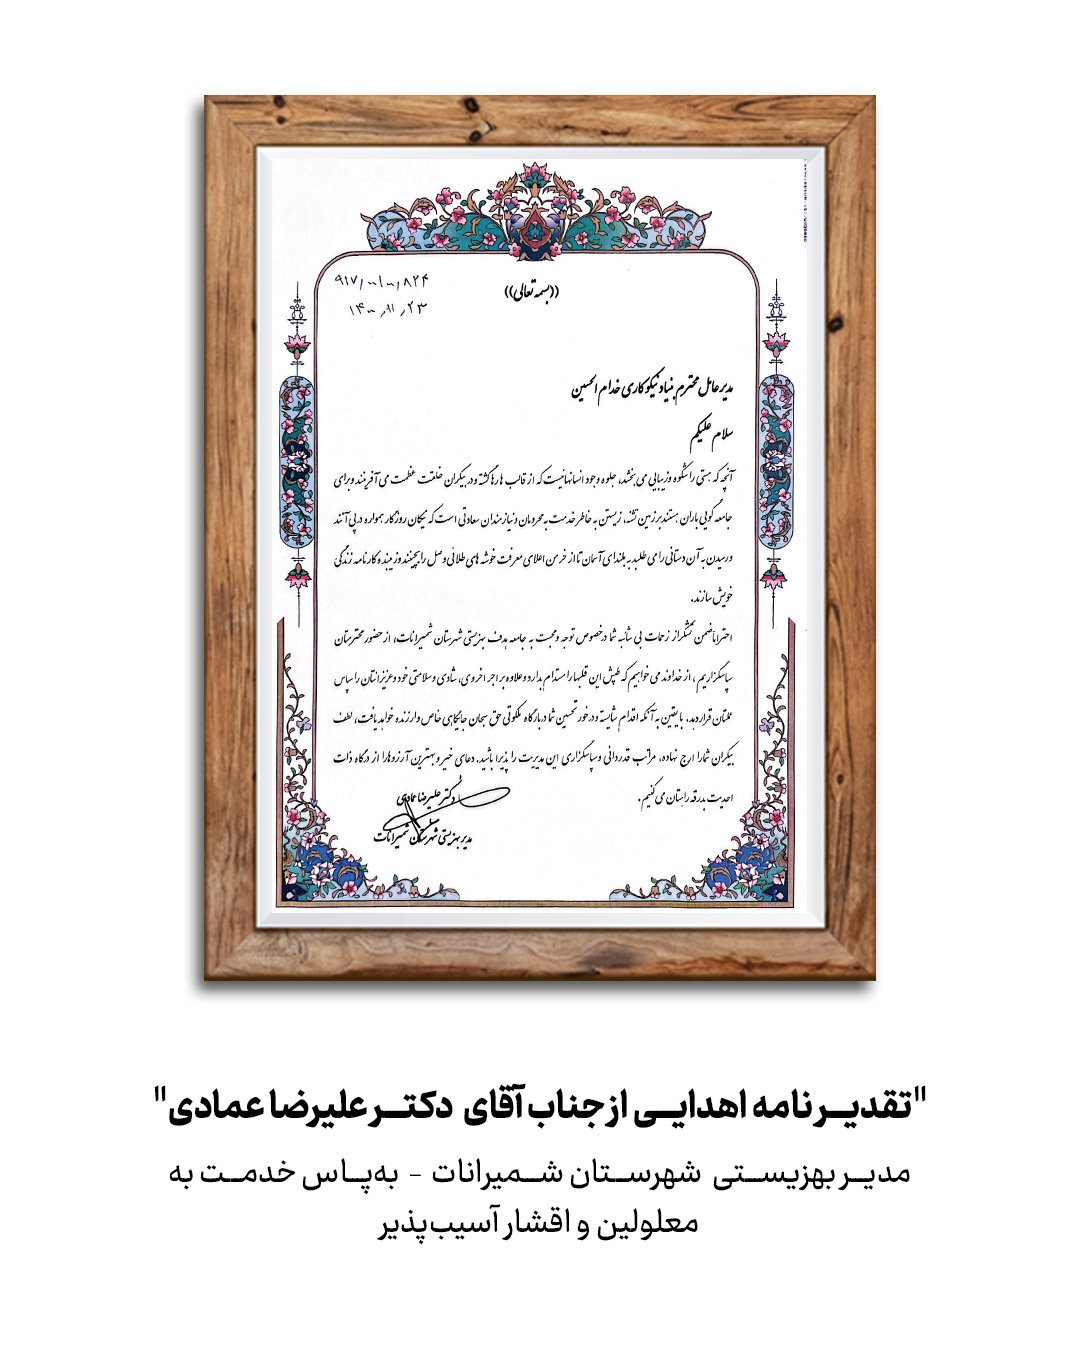 ((بسمه تعالی))
۹۱۷/۰۱/۰۱/۸۲۴
۱۴۰۰/۹۱/۲۳
مدیر عامل محترم بنیاد نیکوکاری خدام الحسین
سلام علیکم
آنچه که هستی را شکوه و زیبایی می بخشد، جلوه وجود انسانهائیست که از قالب ها رها گشته و در بیکران خلقت عظمت می آفرینند و برای
جامعه گویی باران هستند بر زمین تشنه، زیستن به خاطر خدمت به محرومان و نیازمندان سعادتی است که نیکان روزگار همواره در پی آنند
و رسیدن به آن دستانی را می طلبد به بلندای آسمان تا از خرمن اعلای معرفت خوشه های طلائی وصل را بچینند و زمینده کارنامه زندگی
خویش سازند.
احتراما ضمن تشکر از زحمات بی شائبه شما در خصوص توجه و محبت به جامعه هدف بهزیستی شهرستان شمیرانات، از حضور محترمتان
سپاسگزاریم، از خداوند می خواهیم که طپش این قلبها را مستدام بدارد و علاوه بر اجر اخروی، شادی و سلامتی خود و عزیزانتان را سپاس
عملتان قرار دهد. با یقین به آنکه اقدام شایسته و در خور تحسین شما در بارگاه ملکوتی حق سبحان جایگاهی خاص و ارزنده خواهد یافت، لطف
بیکران شما را ارج نهاده، مراتب قدردانی و سپاسگزاری این مدیریت را پذیرا باشید. دعای خیر و بهترین آرزوها را از درگاه ذات
احدیت بدرقه راهتان می کنیم.
دکتر علیرضا عمادی
مدیر بهزیستی شهرستان شمیرانات
"تقدیر نامه اهدایی از جناب آقای دکتر علیرضا عمادی"
مدیر بهزیستی شهرستان شمیرانات - به‌پاس خدمت به
معلولین و اقشار آسیب‌پذیر